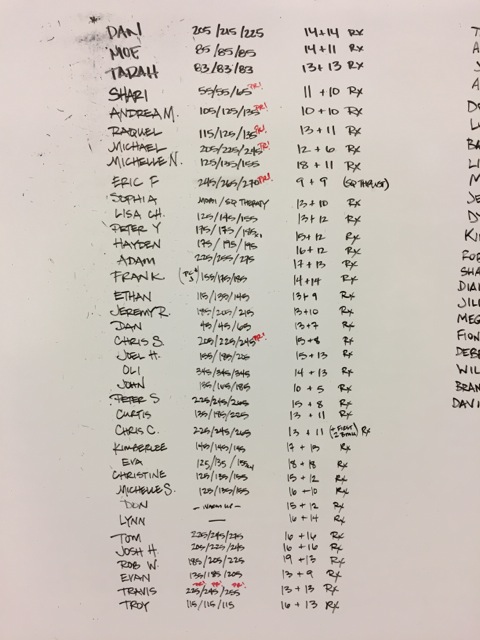 DAN 205/215/225 14+14 Rx
MOE 85/85/85 14+11 Rx
TARAH 83/83/83 13+13 Rx
SHARI 55/55/65 PR! 11+10 Rx
ANDREA M. 105/125/135 PR! 10+10 Rx
RAQUEL 115/125/135 PR! 13+11 Rx
MICHAEL 205/225/245 PR! 12+6 Rx
MICHELLE N. 125/135/155 18+11 Rx
ERIC F 245/265/270 PR! 9+9 (SQ THRUST)
SOPHIA /SQ THERAPY 13+10 Rx
LISA CH. 125/145/155 13+12 Rx
PETER Y 175/175/ 15+12 Rx
HAYDEN 175/195/195 16+12 Rx
ADAM 225/255/275 17+13 Rx
FRANK 155/175/185 14+14 Rx
ETHAN 115/135/145 13+9 Rx
JEREMY R. 195/205/215 13+10 Rx
DAN 45/45/65 13+7 Rx
CHRIS S. 205/225/245 PR! 15+8 Rx
JOEL H. 155/185/ 15+13 Rx
OLI 345/345/345 14+13 Rx
JOHN 185/ 10+5 Rx
PETER S 225/245/265 15+8 Rx
CURTIS 135/195/225 13+11 Rx
CHRIS C. 225/245/265 13+11 Rx
KIMBERLEE 145/145/145 17+13 Rx
EVA 125/135/ 18+18 Rx
CHRISTINE 125/135/155 15+12 Rx
MICHELLE S. 125/135/155 16+10 Rx
DON - WARM UP - 15+12 Rx
LYNN — 16+14 Rx
TOM 225/245/275 16+16 Rx
JOSH H. 205/225/245 16+16 Rx
ROB W. 185/205/225 19+13 Rx
EVAN 135/185/205 13+9 Rx
TRAVIS PR! 225/ PR! 245/ PR! 255 13+13 Rx
TROY 115/115/115 16+13 Rx